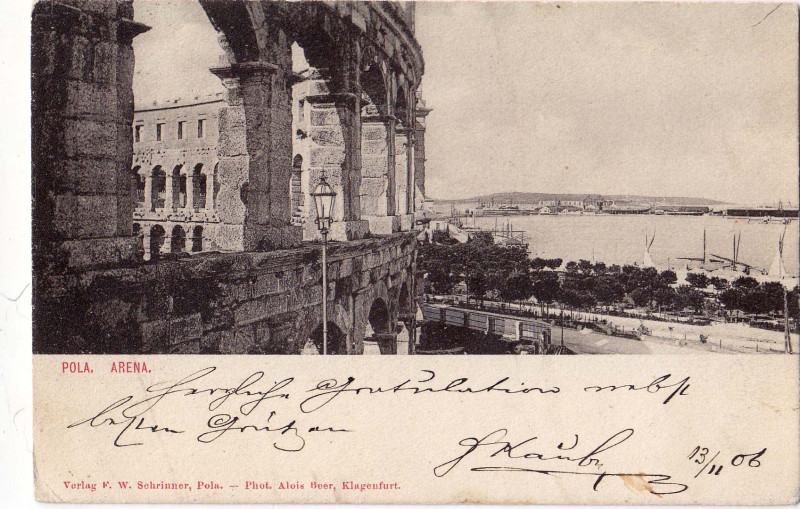 POLA. ARENA.
Herzliche Gratulation nebst
besten Grüßen
13/11 06
Verlag F. W. Schrinner, Pola. — Phot. Alois Beer, Klagenfurt.